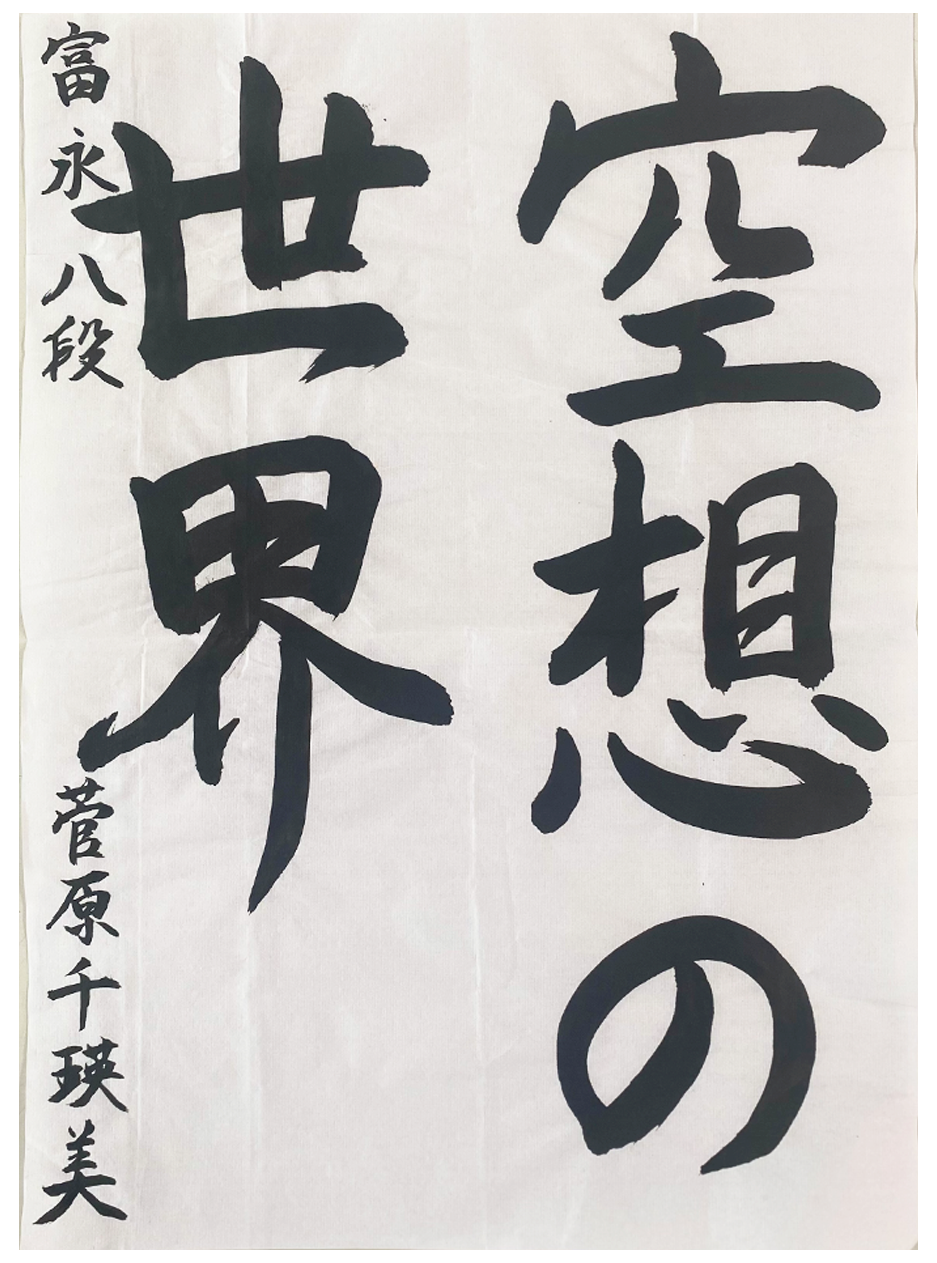 空想の
世界
富永八段 菅原千瑛美